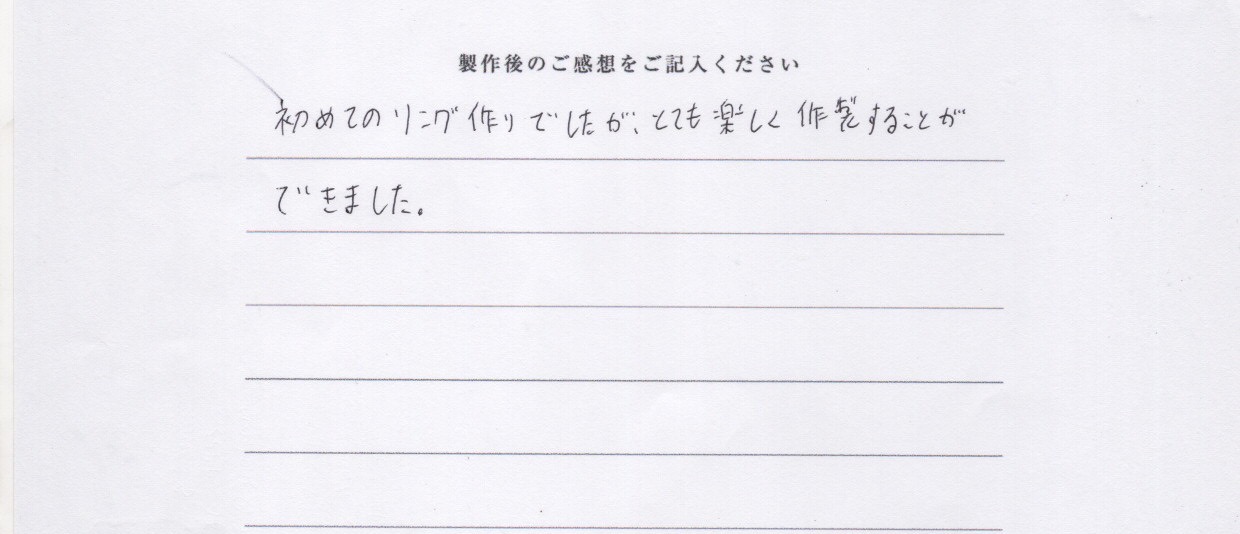 製作後のご感想をご記入ください
初めてのリング作りでしたが、とても楽しく作製することが
できました。